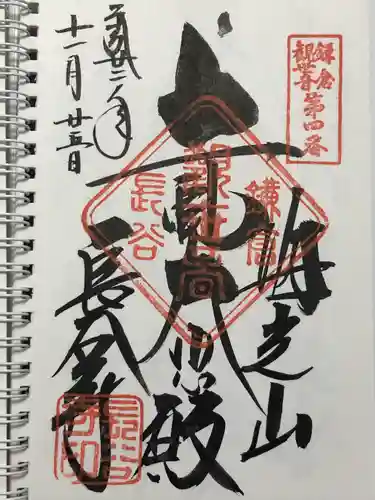 鎌倉
観世音第四番
海光山
悲殿
鎌倉
観世音
長谷
十一月廿五日
長谷寺
長谷
寺印